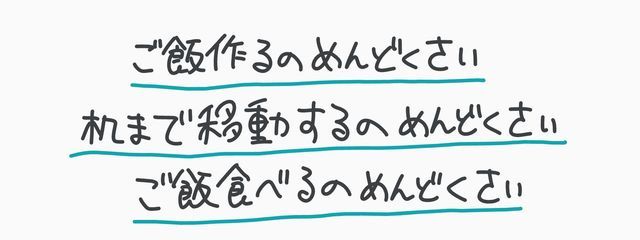 ご飯作るのめんどくさい
机まで移動するのめんどくさい
ご飯食べるのめんどくさい